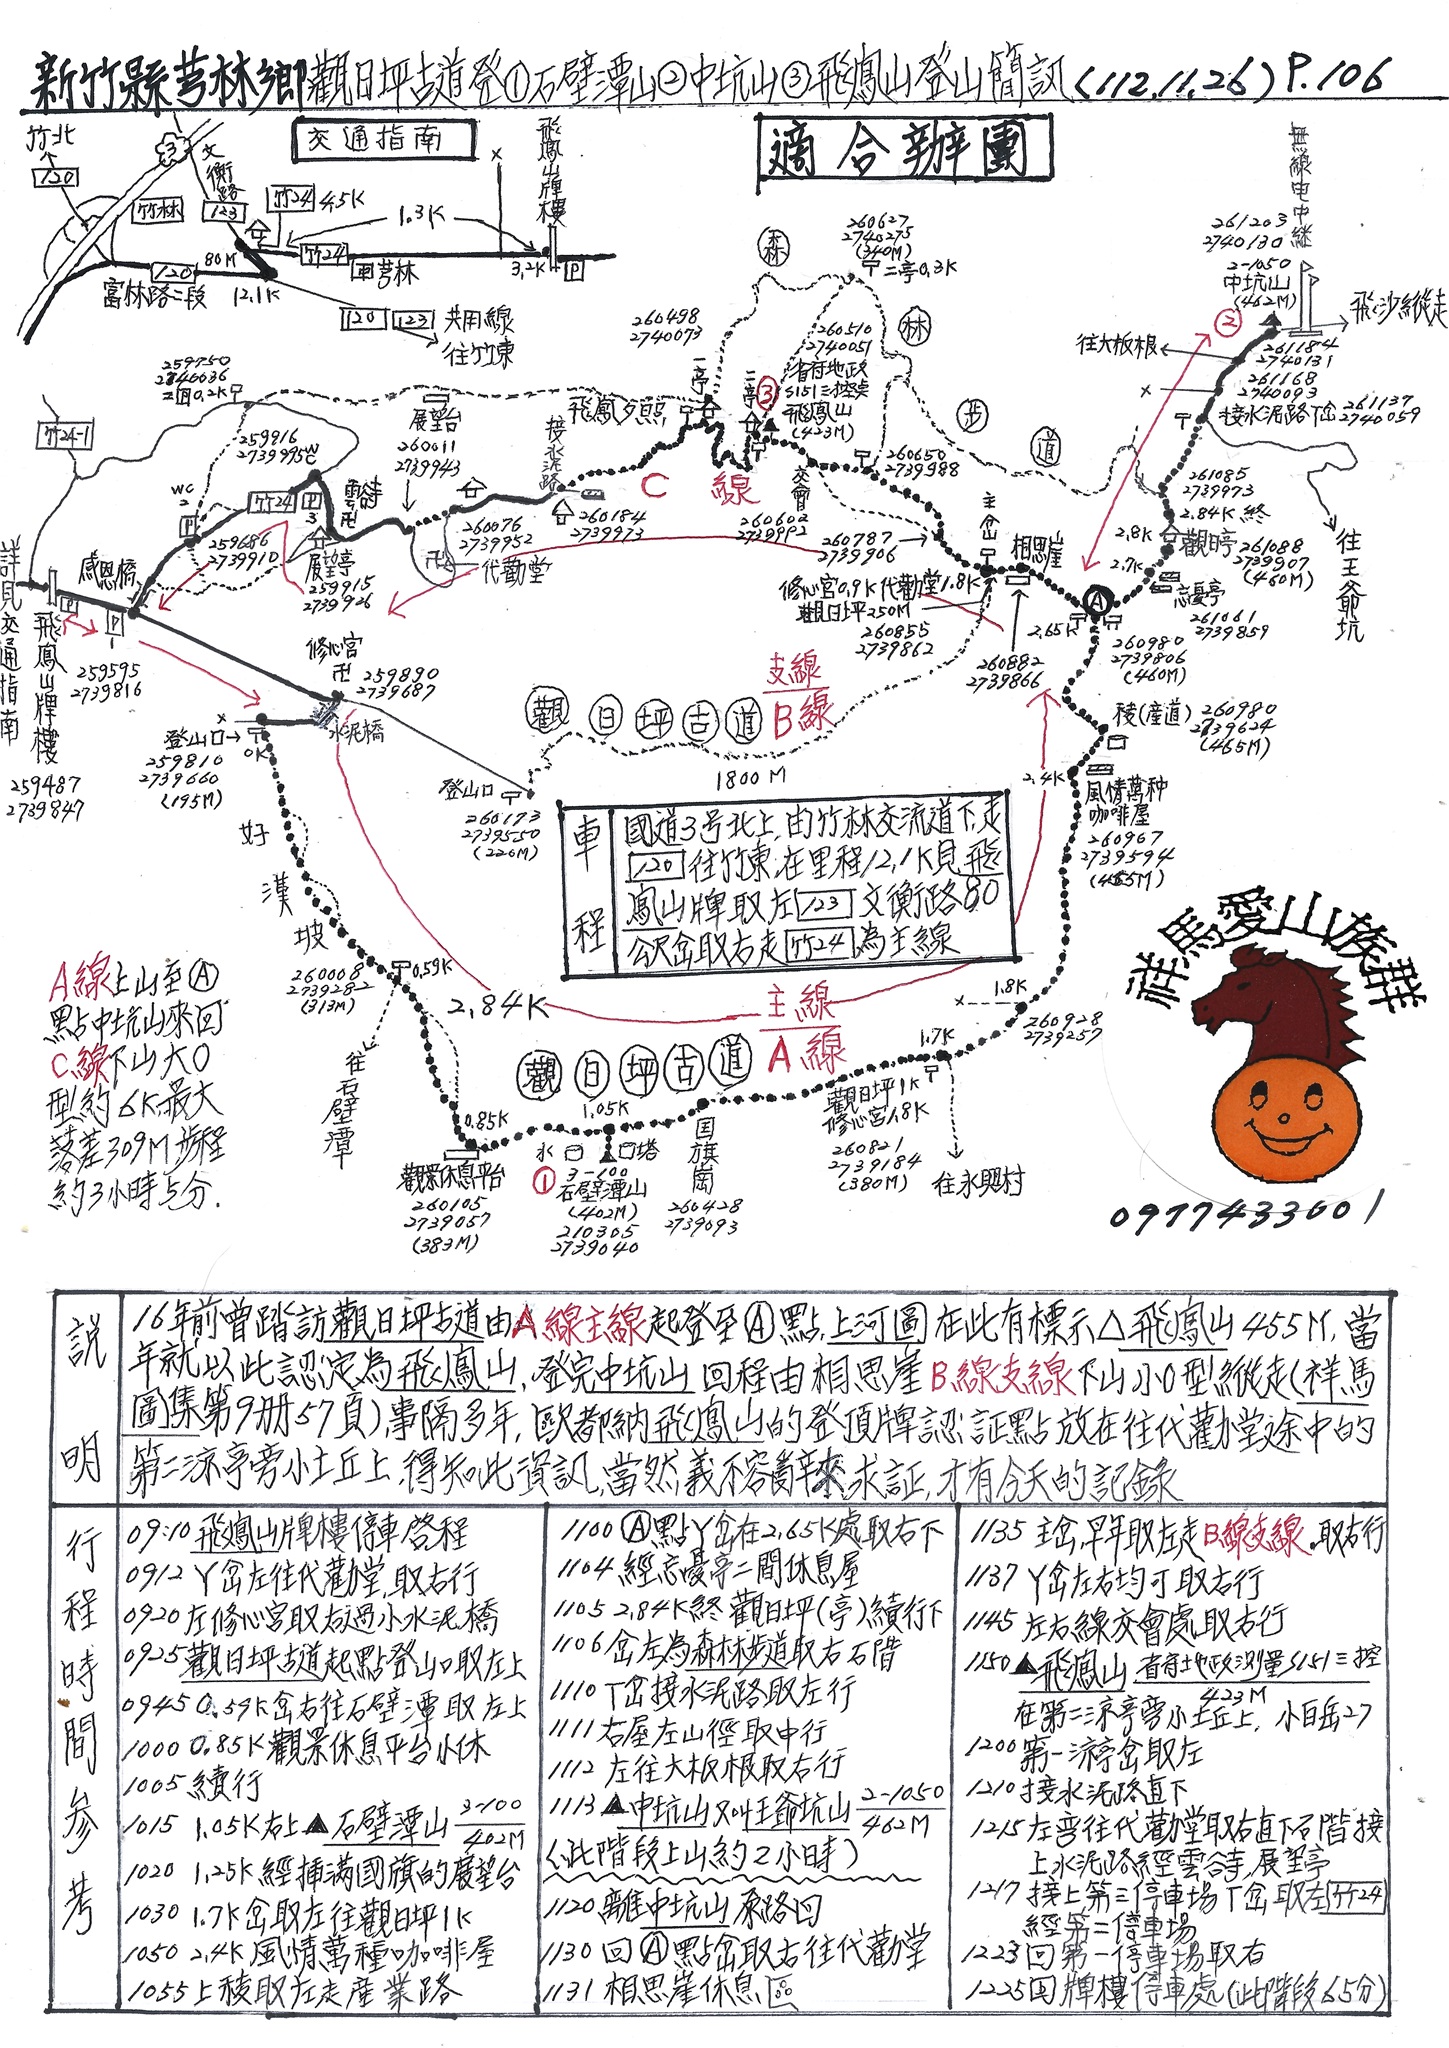 新竹縣芎林鄉觀日坪古道登①石壁潭山②中坑山③飛鳳山登山簡訊(112.11.26)P.106
交通指南
適合辦團
竹北
120
文衡路
竹林
123
竹24
4.5K
1.3K
飛鳳山牌樓
80M
竹24
芎林
3.2K
P
120
富林路二段
12.1K
120
123
共用線
往竹東
無線电中継
261203
2740130
2-1050
中坑山
(462M)
飛沙縱走
②
往大板根
261184
2740131
261168
2740093
接水泥路下岔
261137
2740059
森
林
步
道
260627
2740275
(340M)
二亭0.3K
260498
2740073
260510
2740051
省府地政
S151三控点
飛鳳山
(423M)
③
一亭
二亭
飛鳳夕照
259750
2740036
0.2K
展望台
260611
2739943
接水泥路
竹24-1
259916
2739995
WC
WC
2
P
竹24
P
3
雲谷寺
C 線
260650
2739988
交會
260602
2739992
主岔
相思崖
260787
2739906
261085
2739973
2.84K 終
2.8K
觀日亭
261088
2739907
(460M)
2.7K
忘憂亭
261061
2739859
往王爺坑
259686
2739910
展望亭
259915
2739926
260076
2739952
代勸堂
260184
2739973
修心宮0.9K 代勸堂1.8K
觀日坪250M
260855
2739862
260882
2739866
A
2.65K
260980
2739806
(460M)
詳見交通指南
感恩橋
P
P
1
飛鳳山牌樓
259595
2739816
259487
2739847
修心宮
259890
2739687
水泥橋
登山口
0K
259810
2739660
(195M)
觀日坪古道
支線
B線
1800M
登山口
260173
2739550
(226M)
稜(産道)
260980
2739624
(465M)
2.4K
風情萬种
咖啡屋
260967
2739594
(465M)
車程
國道3号北上,由竹林交流道下,走
120往竹東,在里程12.1K見飛
鳳山牌取左123文衡路80
公尺岔取右走竹24為主線
好漢坡
260008
2739282
(313M)
0.59K
往石壁潭
2.84K
主線
A線
觀日坪古道
A線上山至Ⓐ
點中坑山來回
C線下山大O
型約6K.最大
落差309M步程
約3小時5分.
1.8K
260928
2739257
1.7K
觀日坪1K
修心宮1.8K
260821
2739184
(380M)
往永興村
0.85K
觀景休息平台
260105
2739057
(383M)
1.05K
水
塔
①
3-100
石壁潭山
(402M)
210305
2739040
国旗崗
260428
2739093
祥馬愛山族群
0977433601
説明
16年前曾踏訪觀日坪古道由A線主線起登至Ⓐ點,上河圖在此有標示△飛鳳山455M,當
年就以此認定為飛鳳山,登完中坑山回程由相思崖B線支線下山小O型縱走(祥馬
圖集第9册57頁),事隔多年,歐都納飛鳳山的登頂牌認証點放在往代勸堂途中的
第二涼亭旁小土丘上,得知此資訊,當然義不容辭來求証,才有今天的記錄
行程時間參考
09:10飛鳳山牌樓停車啓程
0912丫岔左往代勸堂,取右行
0920左修心宮取右過小水泥橋
0925觀日坪古道起點登山口取左上
0945 0.59K岔右往石壁潭取左上
1000 0.85K觀景休息平台小休
1005續行
1015 1.05K右上▲石壁潭山 3-100 402M
1020 1.25K經插滿國旗的展望台
1030 1.7K岔取左往觀日坪1K
1050 2.4K風情萬種咖啡屋
1055上稜取左走産業路
1100Ⓐ點丫岔在2.65K處取右下
1104 經忘憂亭二間休息屋
1105 2.84K終觀日坪(亭)續行下
1106岔左為森林步道取右石階
1110丅岔接水泥路取左行
1111右屋左山徑取中行
1112左往大板根取右行
1113▲中坑山又叫王爺坑山 2-1050 462M
(此階段上山約2小時)
1120離中坑山原路回
1130回Ⓐ點岔取右往代勸堂
1131相思崖休息區
1135主岔,早年取左走B線支線,取右行
1137丫岔左右均可取右行
1145左右線交會處取右行
1150▲飛鳳山省府地政測量S151三控
423M
在第二涼亭旁小土丘上,小百岳27
1200第一涼亭岔取左
1210接水泥路直下
1215左彎往代勸堂取右直下石階接
上水泥路經雲谷寺,展望亭
1217接上第三停車場丅岔取左竹24
經第二停車場
1223回第一停車場取右
1225回牌樓停車處(此階段65分)